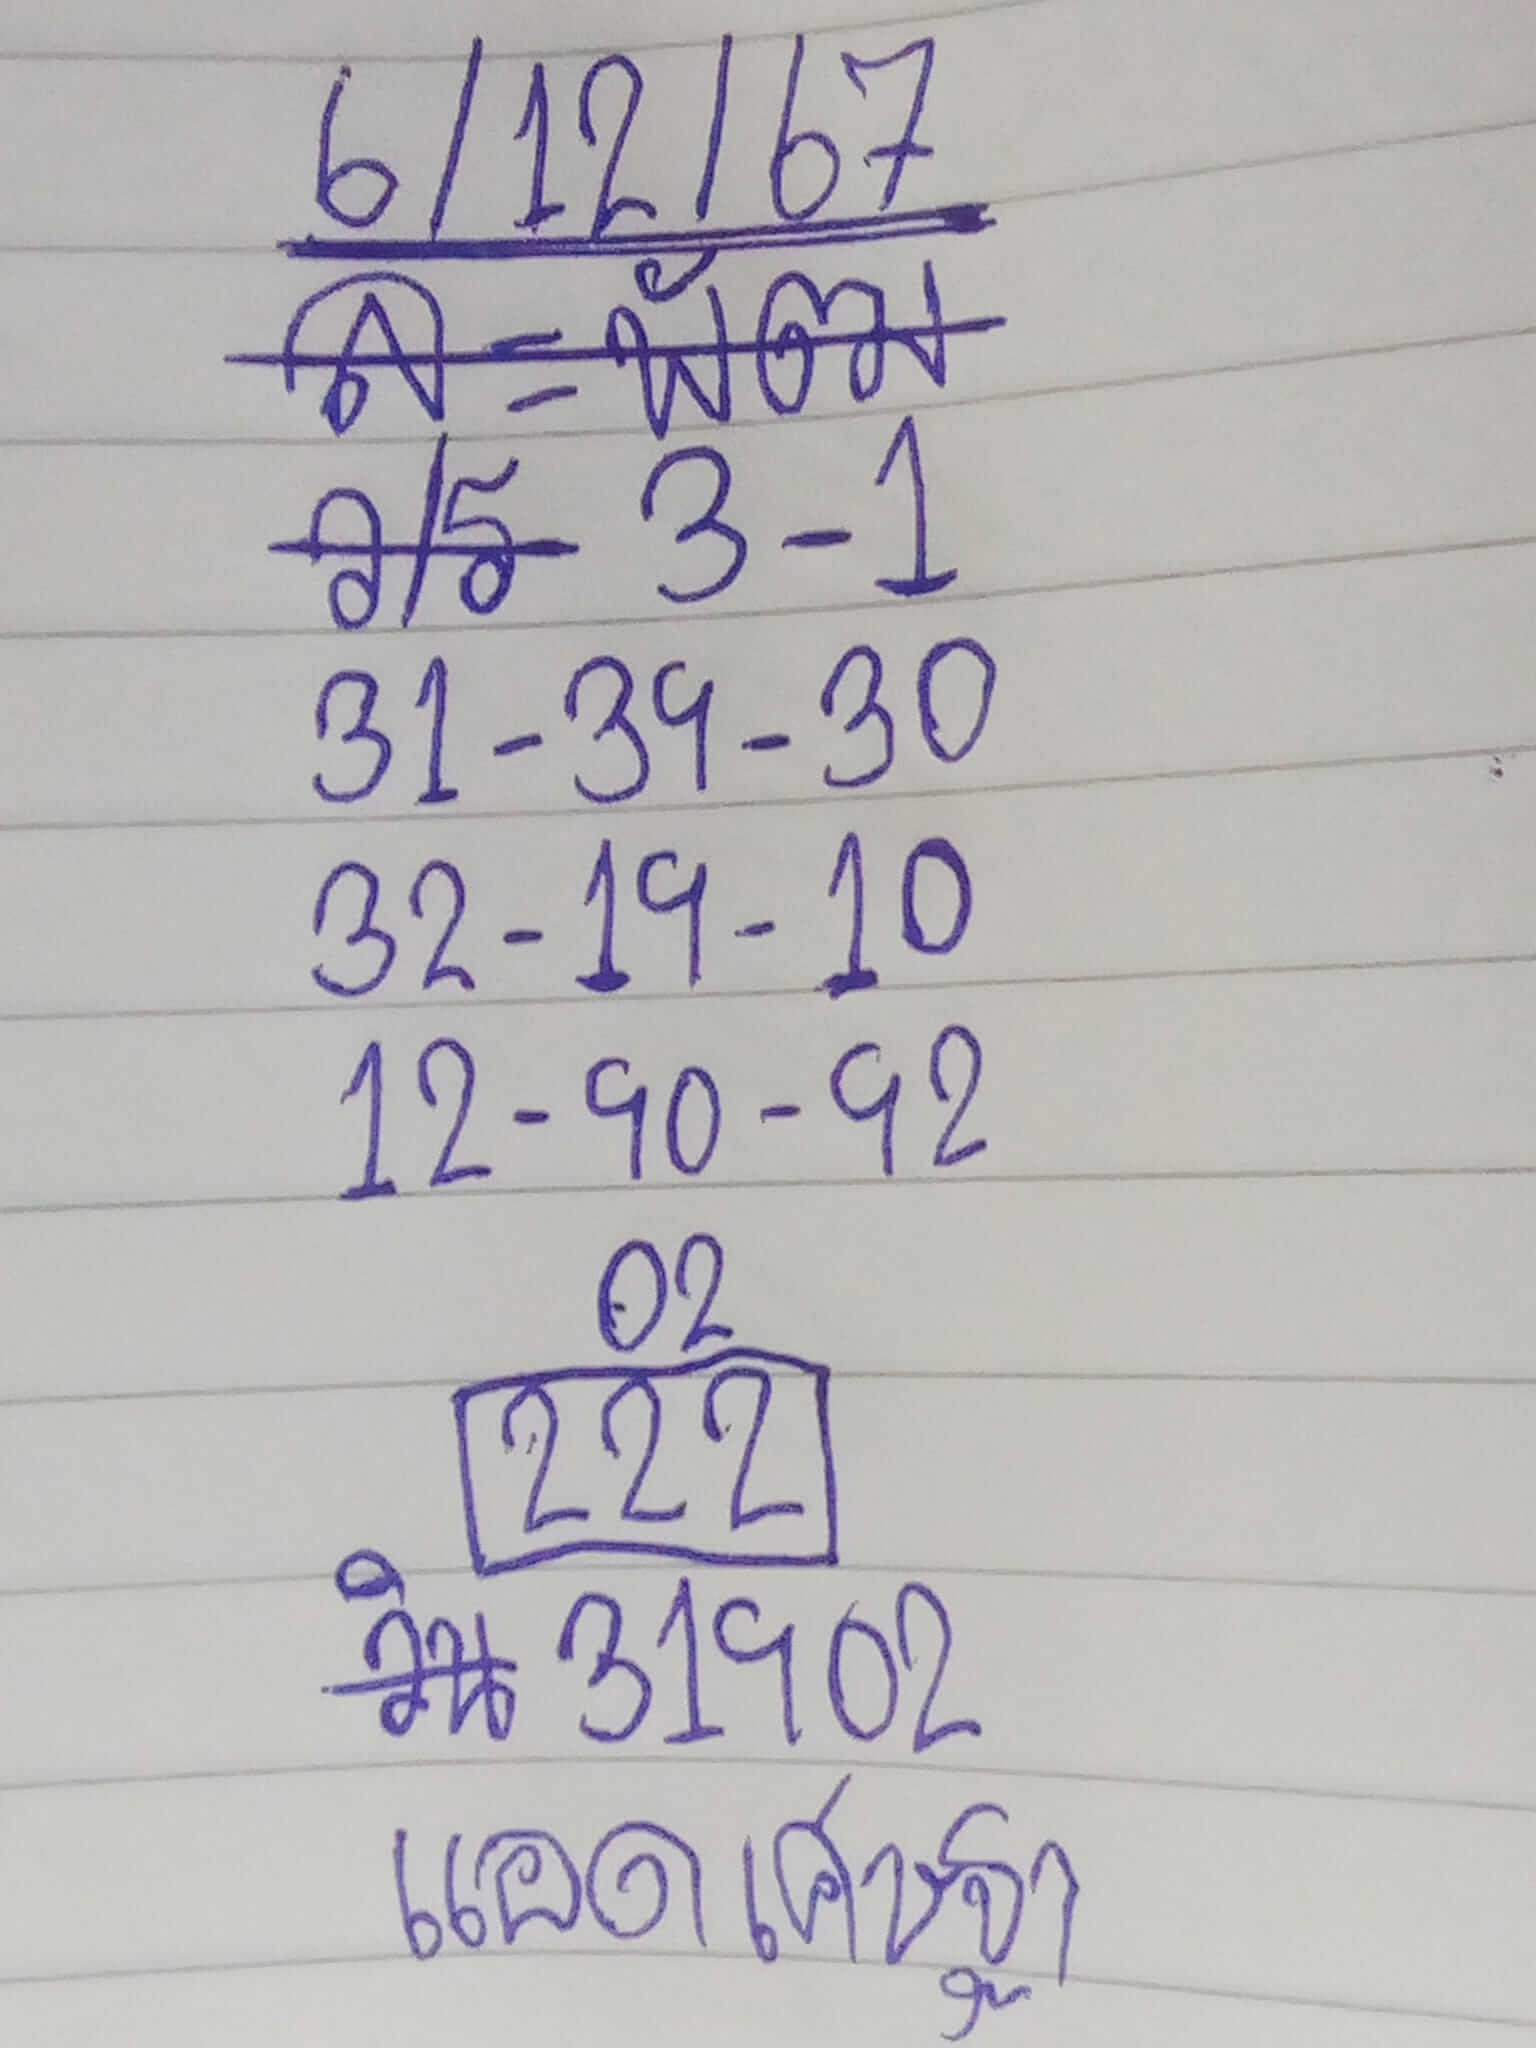 6/12/67
ล=พัฒน
ว/ร 3-1
31-39-30
32-19-10
12-90-92
02
222
วิน 31902
แอด เศษฐา